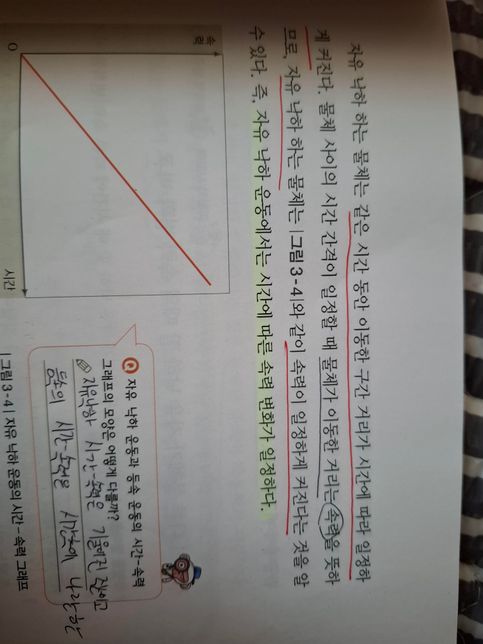 자유 낙하 하는 물체는 같은 시간 동안 이동한 구간 거리가 시간에 따라 일정하
게 커진다. 물체 사이의 시간 간격이 일정할 때 물체가 이동한 거리는 속력을 뜻하
므로, 자유 낙하 하는 물체는 |그림 3-4|와 같이 속력이 일정하게 커진다는 것을 알
수 있다. 즉, 자유 낙하 운동에서는 시간에 따른 속력 변화가 일정하다.
속력
O
시간
자유 낙하 운동과 등속 운동의 시간-속력
그래프의 모양은 어떻게 다를까?
자유낙하 시간-속력은 기울어진 직선이고
등속의 시간-속력은 시간축에 나란한
|그림 3-4| 자유 낙하 운동의 시간-속력 그래프